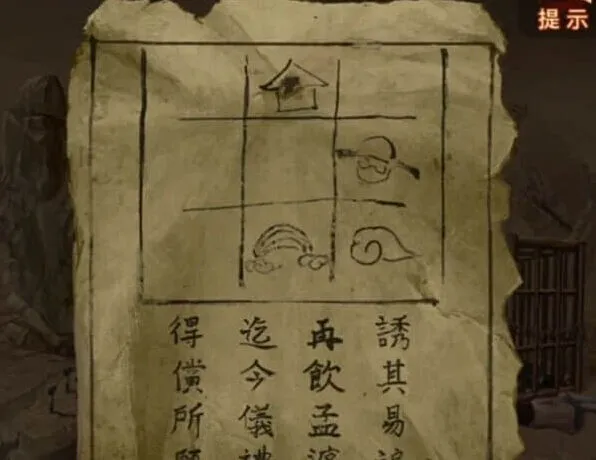 提示
誘其易
再飲孟婆
迄今儀禮
得償所願